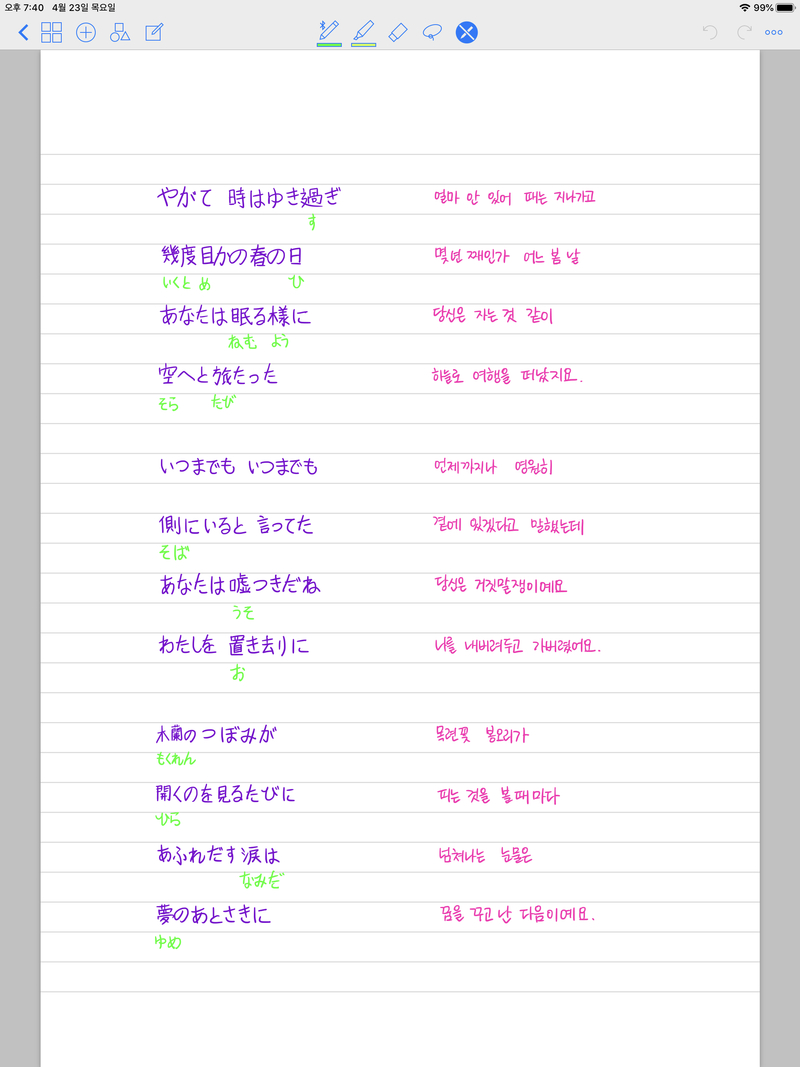 오후 7:40 4월 23일 목요일 99%
やがて 時はゆき過ぎ 얼마 안 있어 때는 지나가고
す
幾度目かの春の日 몇년 째인가 어느 봄 날
いくど め ひ
あなたは眠る様に 당신은 자는 것 같이
ねむ よう
空へと旅たった 하늘로 여행을 떠났지요.
そら たび
いつまでも いつまでも 언제까지나 영원히
側にいると 言ってた 곁에 있겠다고 말했는데
そば
あなたは嘘つきだね 당신은 거짓말쟁이예요
うそ
わたしを 置き去りに 나를 내버려두고 가버렸어요.
お
木蘭のつぼみが 목련꽃 봉오리가
もくれん
開くのを見るたびに 피는 것을 볼때마다
ひら
あふれだす涙は 넘쳐나는 눈물은
なみだ
夢のあとさきに 꿈을 꾸고 난 다음이예요.
ゆめ